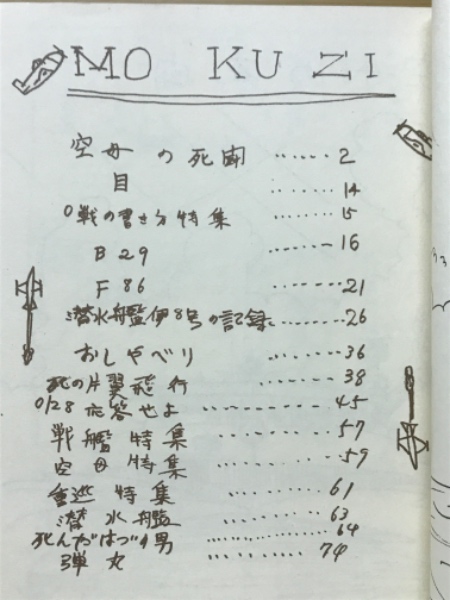 MO KU ZI
空母の死闘 ‥‥‥ 2
目 ‥‥‥‥ 14
0戦の書き方特集 ‥‥‥‥ 15
B29 ‥‥‥‥ 16
F86 ‥‥‥‥ 21
潜水艦伊8号の記録 ‥‥‥‥ 26
おしゃべり ‥‥‥‥ 36
死の片翼飛行 ‥‥‥‥ 38
0128応答せよ ‥‥‥‥ 45
戦艦特集 ‥‥‥‥ 57
空母特集 ‥‥‥‥ 59
重巡特集 ‥‥‥‥ 61
潜水艦 ‥‥‥‥ 63
死んだはづの男 ‥‥‥‥ 64
弾丸 ‥‥‥‥ 74